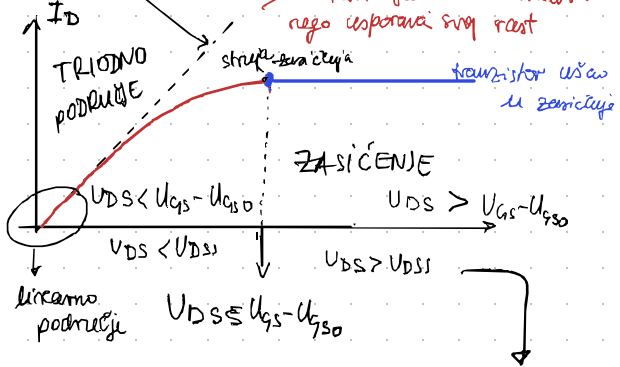 nego usporava svoj rast
I_D
TRIODNO
PODRUČJE
struja zasićenja
tranzistor ušao
u zasićenje
ZASIĆENJE
U_DS < U_GS - U_GS0
U_DS > U_GS - U_GS0
U_DS < U_DSS
U_DS > U_DSS
linearno
područje
U_DSS ≡ U_GS - U_GS0